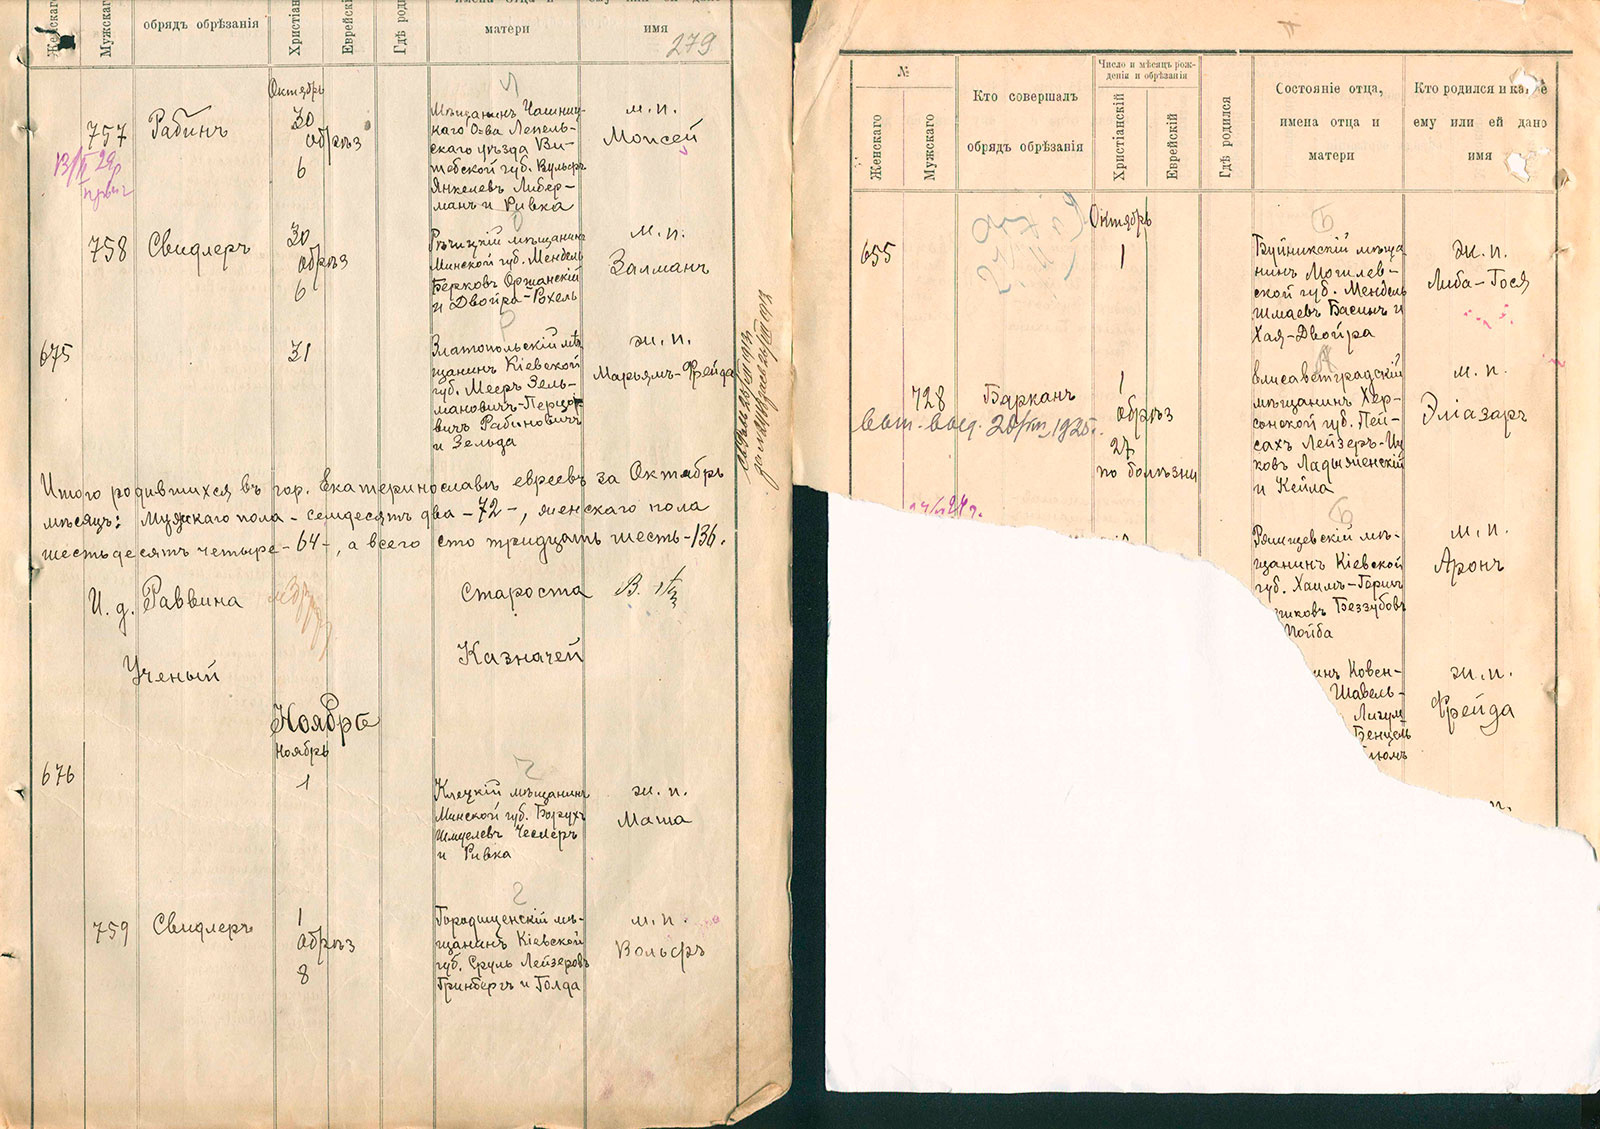 Женскаго
Мужскаго
обрядъ обрѣзанія
Христіан
Еврейск
Гдѣ роди
имена отца и
матери
ему или ей дано
имя
279
Октябрь
757
Рабинъ
30
обрѣз
6
Л
Мѣщанинъ Чашниц-
каго О-ва Лепель-
скаго уѣзда Ви-
тебской губ. Вульфъ
Янкелевъ Либер-
манъ и Ривка
м. п.
Моисей
758
Свидлеръ
30
обрѣз
6
О
Рѣчицкій мѣщанинъ
Минской губ. Мендель
Берковъ Оршанскій
и Двойра-Рохель
м. п.
Залманъ
675
31
Р
Златопольскій мѣ-
щанинъ Кіевской
губ. Мееръ Зель-
мановичъ-Перцо-
вичъ Рабиновичъ
и Зельда
ж. п.
Марьямъ-Фрейда
Итого родившихся въ гор. Екатеринославѣ евреевъ за Октябрь
мѣсяцъ: Мужскаго пола - семдесятъ два - 72 -, женскаго пола
шестьдесятъ четыре - 64 -, а всего сто тридцать шесть - 136.
И. д. Раввина
Староста
В.
Ученый
Казначей
Ноябрь
Ноябрь
676
1
Клецкій мѣщанинъ
Минской губ. Борухъ
Шмуелевъ Чеслеръ
и Ривка
ж. п.
Маша
759
Свидлеръ
1
обрѣз
8
Г
Городищенскій мѣ-
щанинъ Кіевской
губ. Сруль Лейзеровъ
Гринбергъ и Голда
м. п.
Вольфъ
№
Женскаго
Мужскаго
Кто совершалъ
обрядъ обрѣзанія
Число и мѣсяцъ рож-
денія и обрѣзанія
Христіанскій
Еврейскій
Гдѣ родился
Состояніе отца,
имена отца и
матери
Кто родился и какое
ему или ей дано
имя
Октябрь
655
1
Б
Буйникскій мѣща-
нинъ Могилев-
ской губ. Мендель
Шмаевъ Басинъ и
Хая-Двойра
ж. п.
Либа-Гося
728
Барканъ
1
обрѣз
27
по болѣзни
Елисаветградскій
мѣщанинъ Хер-
сонской губ. Пей-
сахъ Лейзеръ-Иц-
ковъ Ладыженскій
и Кейла
м. п.
Эліазаръ
Б
Ряжищевскій мѣ-
щанинъ Кіевской
губ. Хаимъ-Герш
Беззубовъ
Пойба
м. п.
Аронъ
инъ Ковен-
Шавель-
Лигум
Бенцель
ж. п.
Фрейда